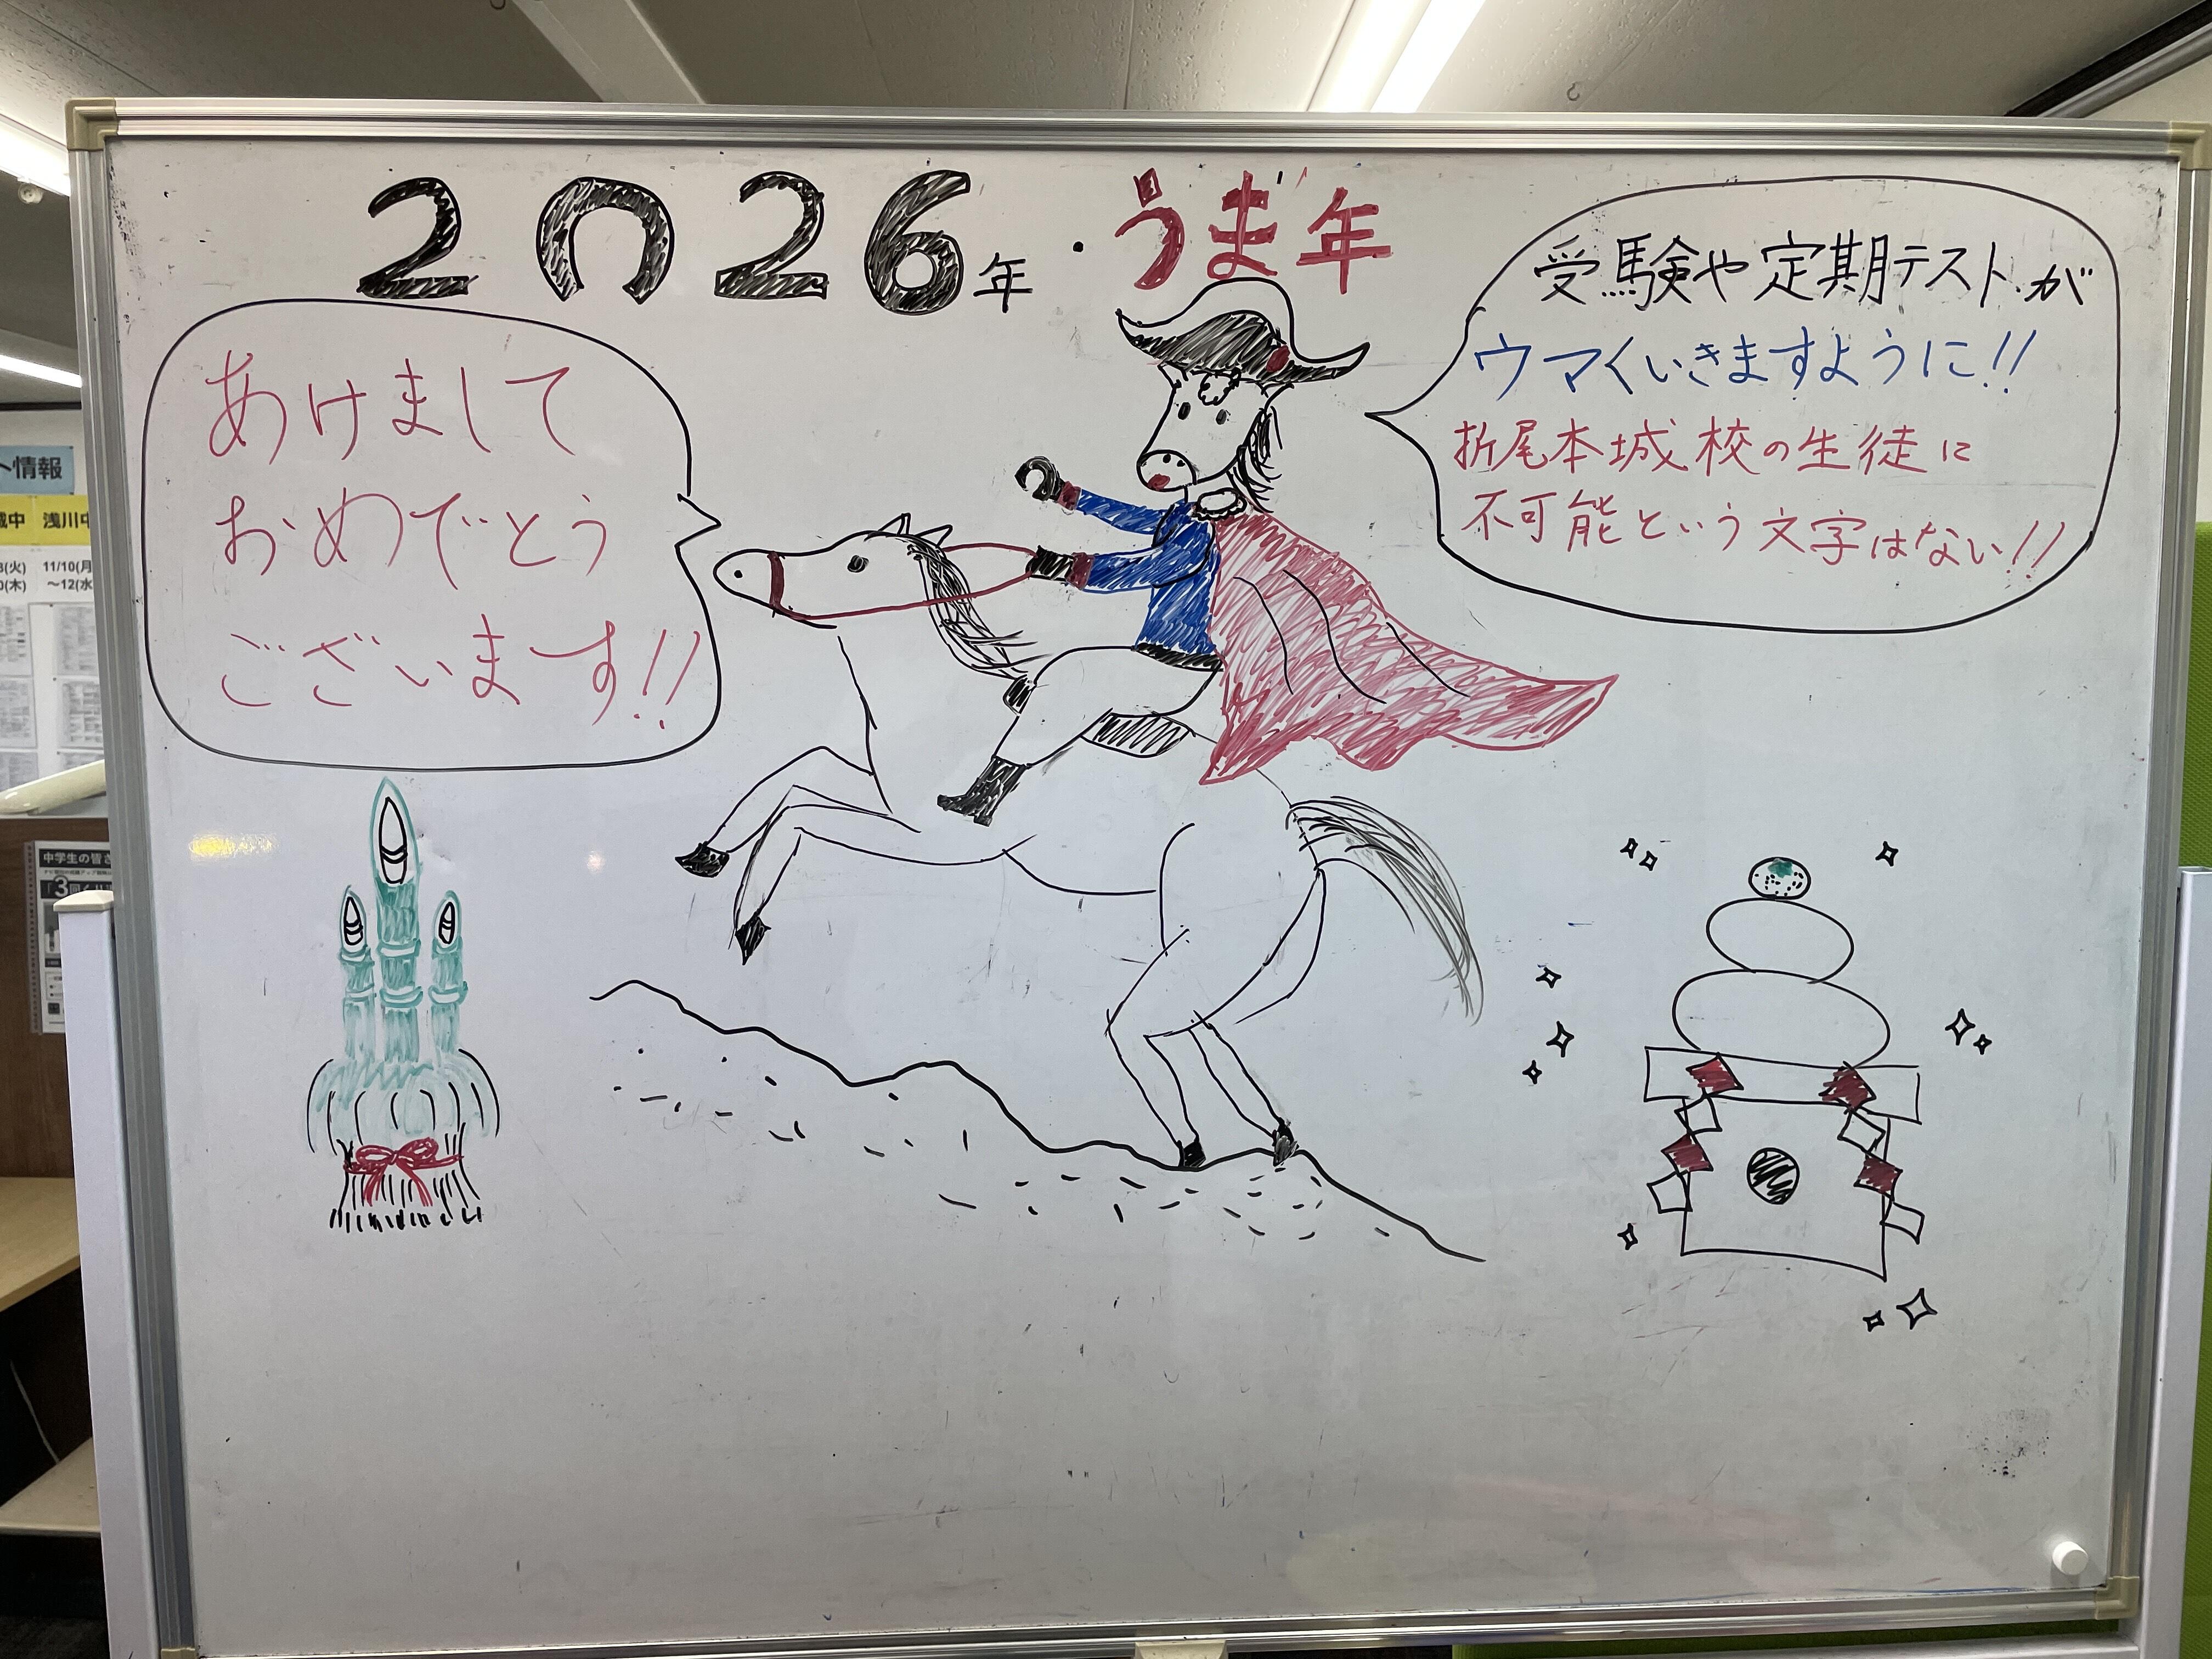 2026年・うま年
あけまして
おめでとう
ございます!!
受験や定期テストが
ウマくいきますように!!
折尾本城校の生徒に
不可能という文字はない!!
ト情報
浅川中
11/10(月
～12(水
(火)
(木)
中学生の皆さ